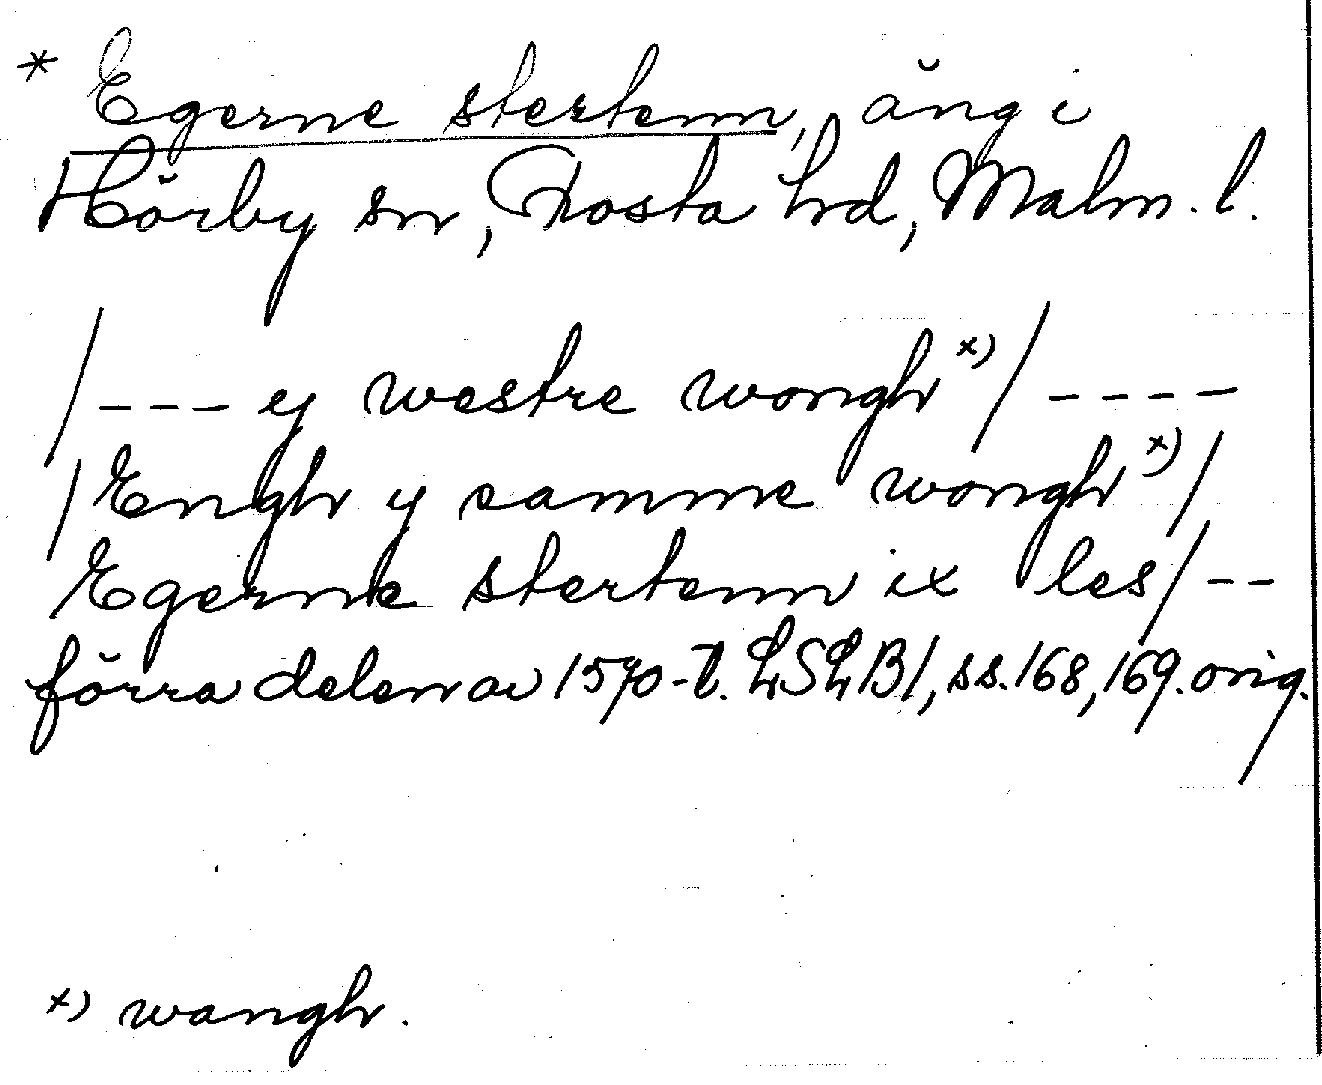 * Egerne stertenn, äng i
Hörby sn, Frosta hd, Malm. l.
/--- y westre wongh x)/ ----
/Engh y samme wongh x)/
Egerne stertenn ix les/--
förra delen av 1570-t. LSLB1, ss. 168, 169. orig.
x) wangh.